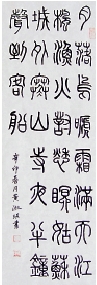 月落烏啼霜滿天江
楓漁火對愁眠姑蘇
城外寒山寺夜半鐘
聲到客船
辛卯春月黃
書